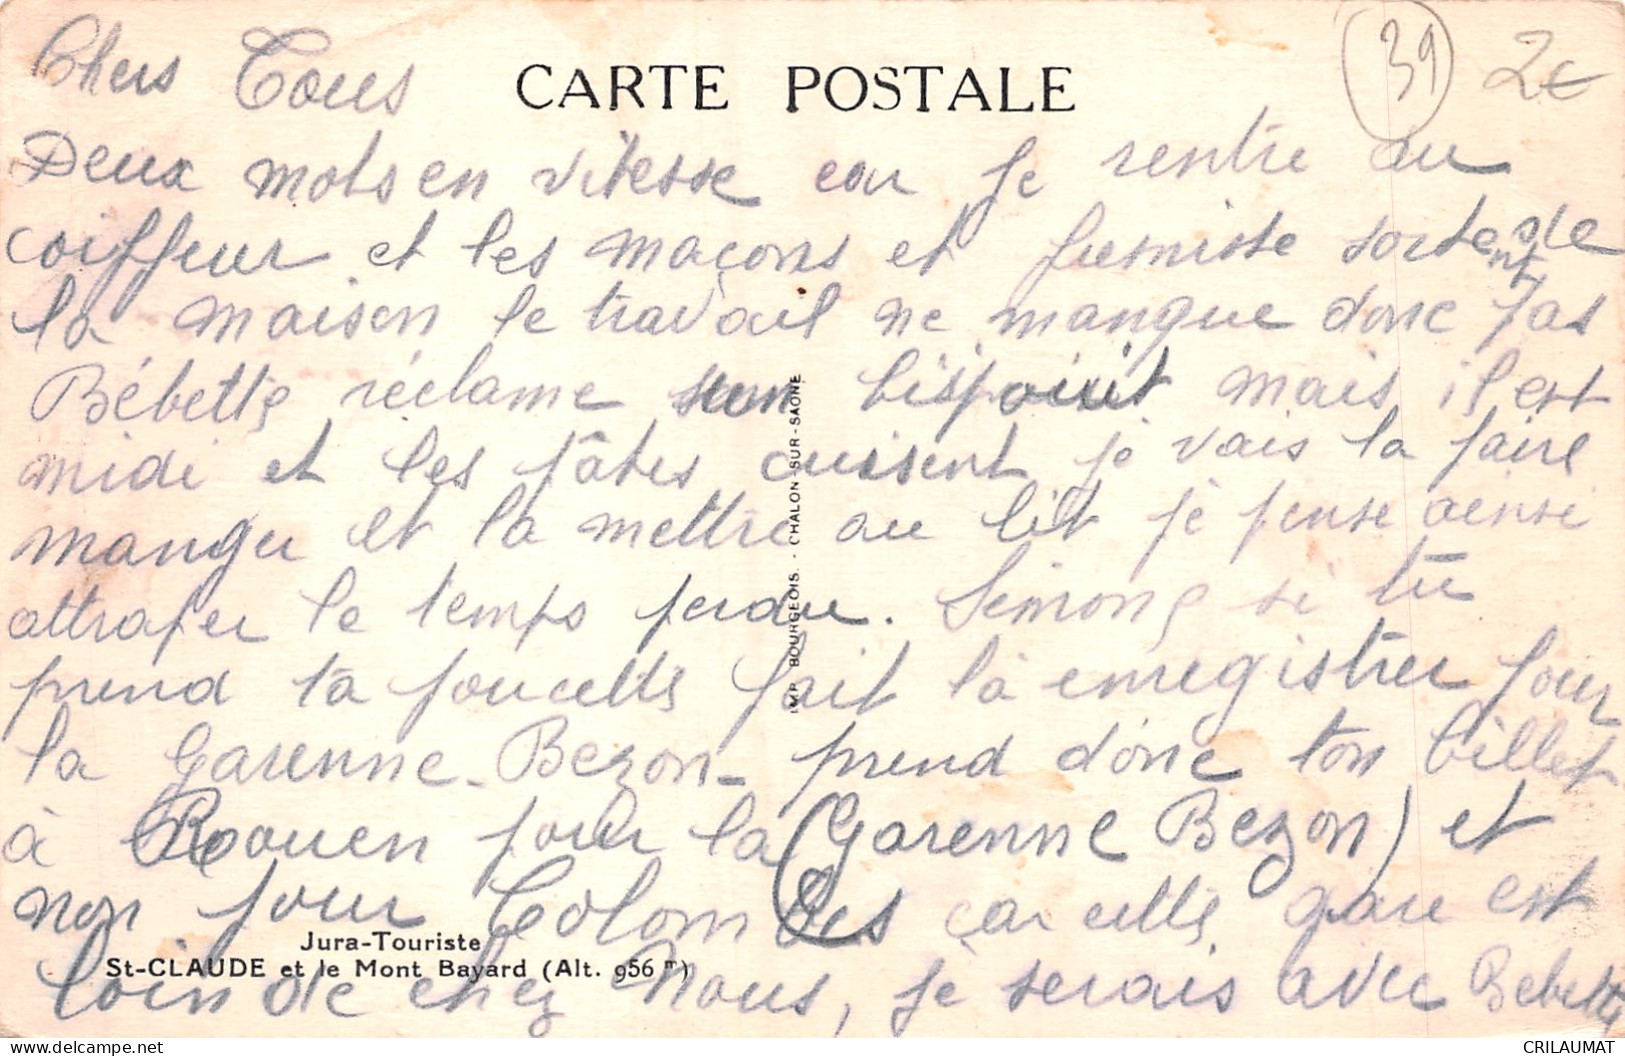 39 2€
Chers Tous
CARTE POSTALE
Deux mots en vitesse car je rentre du
coiffeur et les maçons et fumiste sortent de
la maison le travail ne manque donc pas
Bébette réclame mais il est
midi et les pâtes cuisent je vais la faire
manger et la mettre au lit je pense ainsi
attraper le temps perdu. Simone si tu
prend ta poucette fait là enregistrer pour
la Garenne-Bezon- prend donc ton billet
à Rouen pour la (Garenne Bezon) et
non pour Colombes car cette gare est
loin de chez Nous, je serais avec Bebette
Jura-Touriste
St-CLAUDE et le Mont Bayard (Alt. 956 m)
IMP. BOURGEOIS. - CHALON-SUR-SAONE
delcampe.net
CRILAUMAT